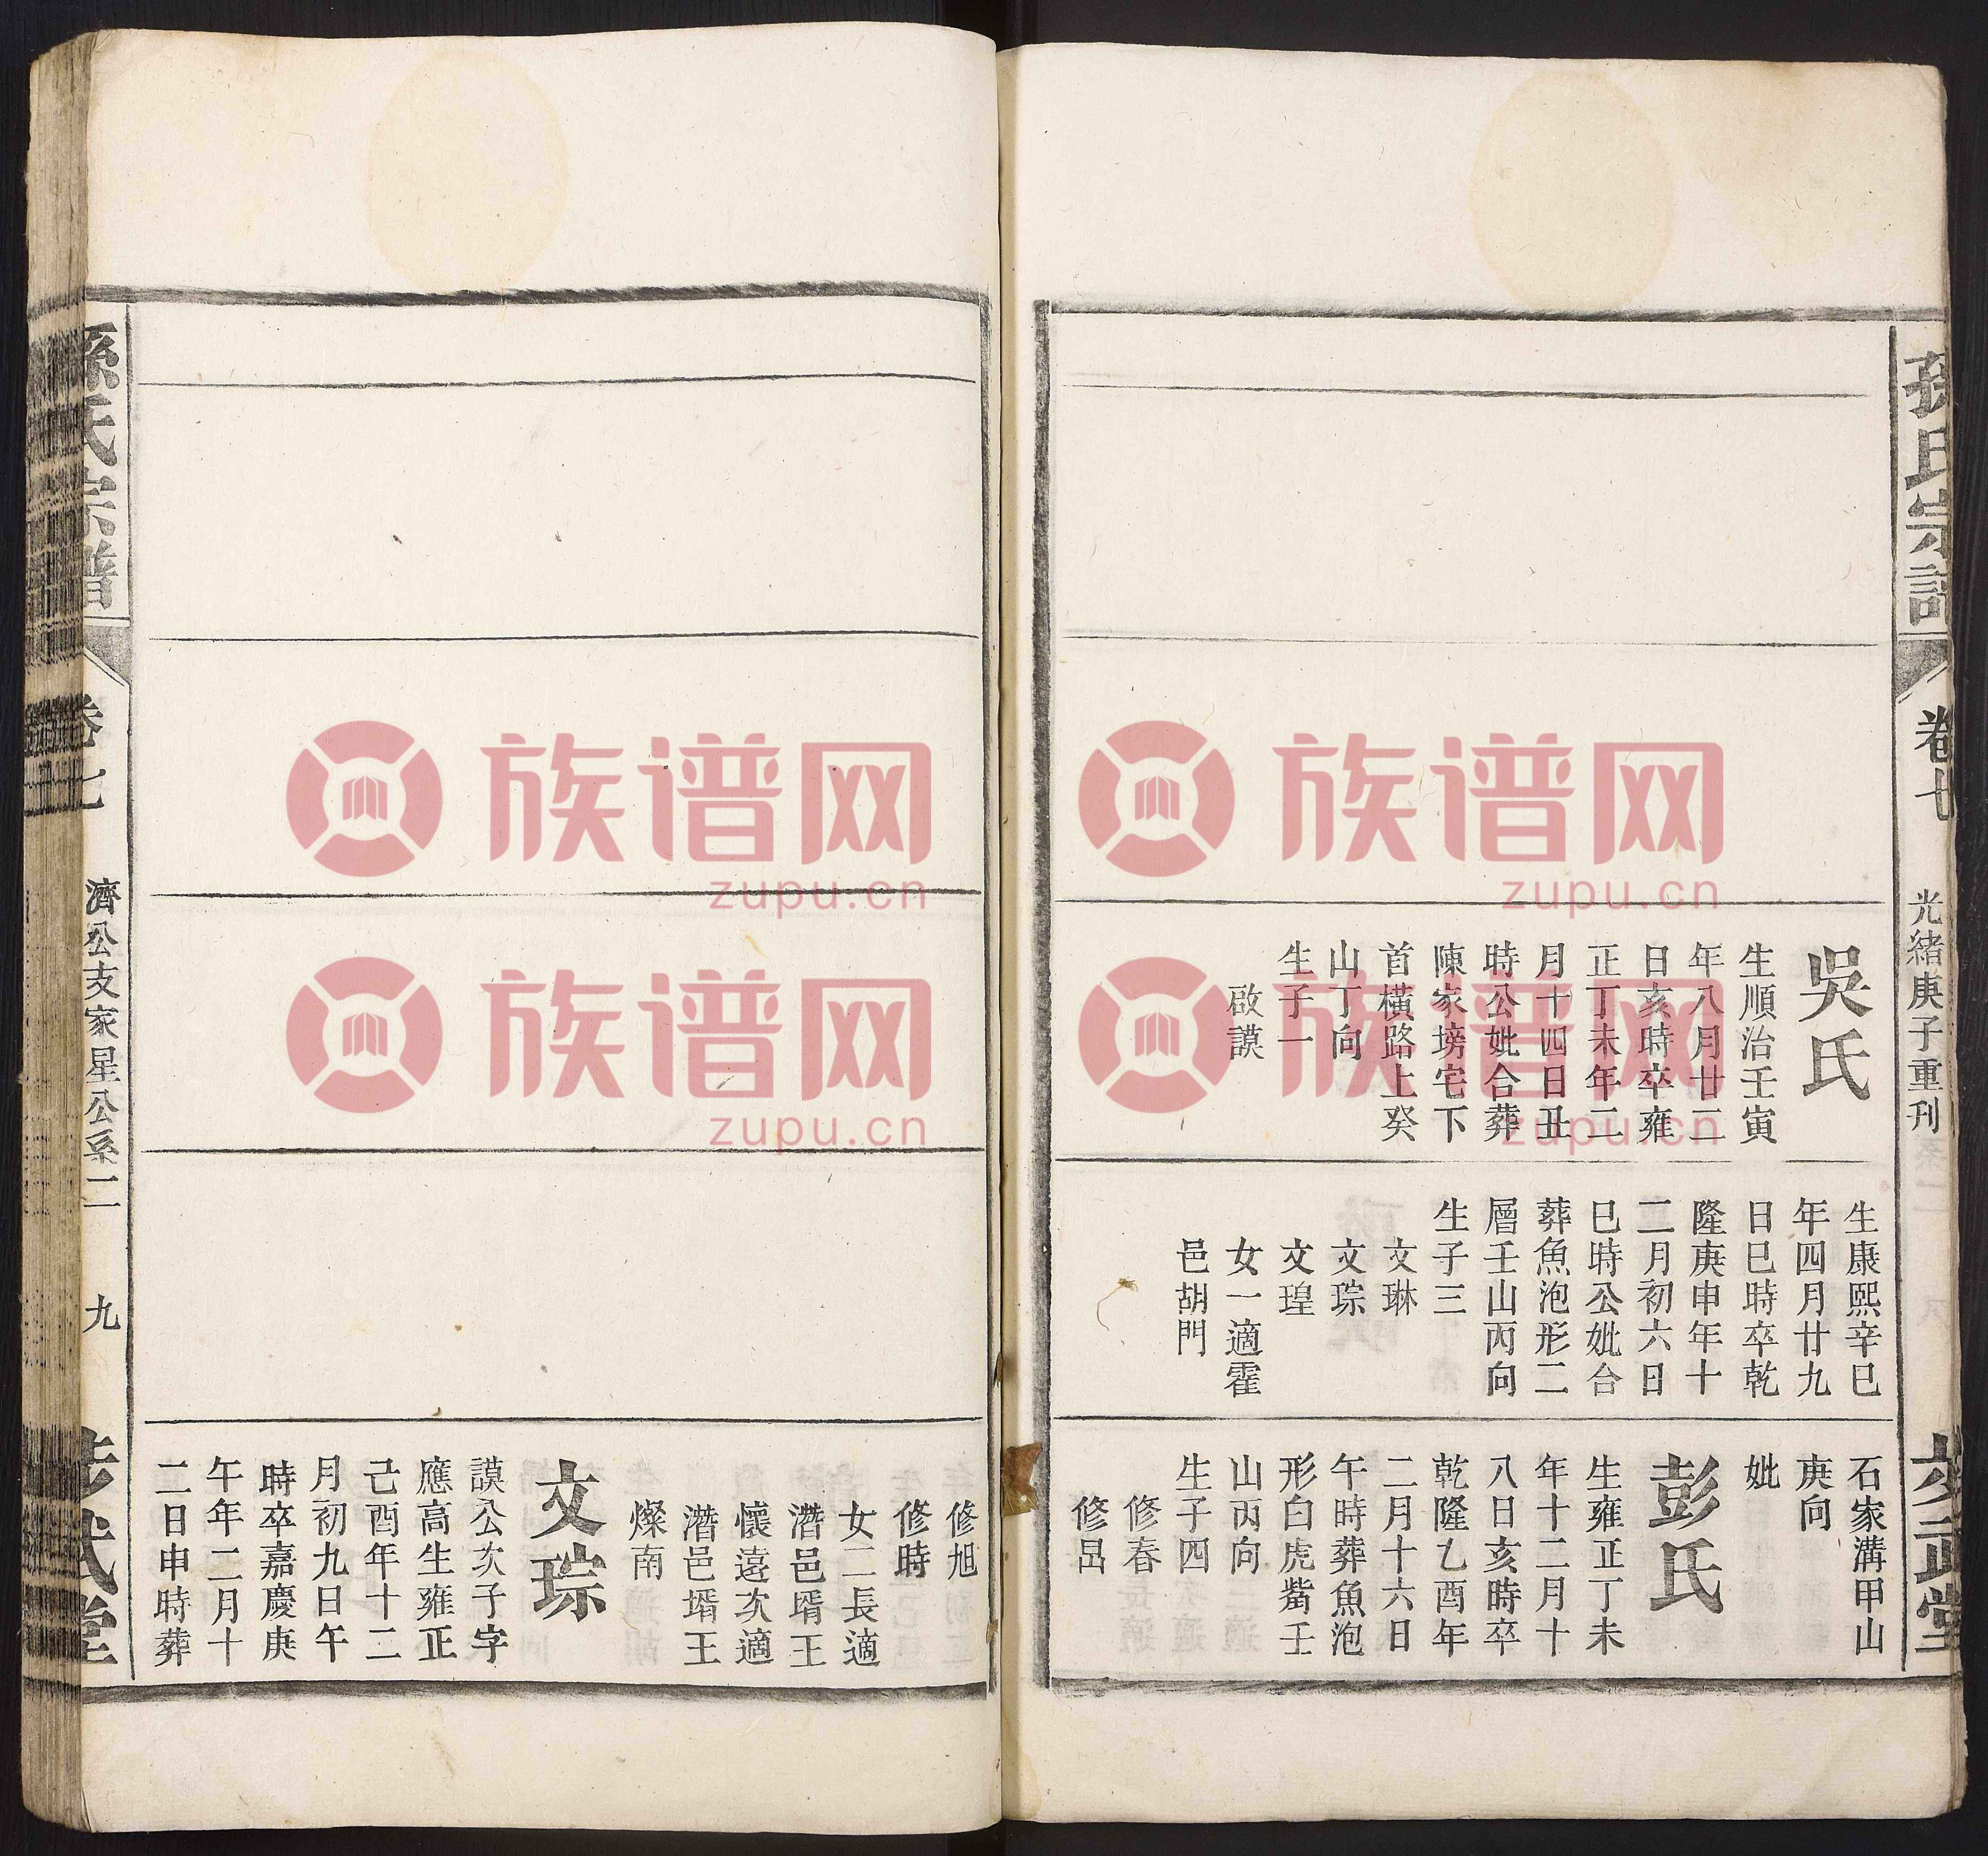 孫氏宗譜
卷七
光緒庚子重刊
步武堂
吳氏
生順治壬寅
年八月廿二
日亥時卒雍
正丁未年二
月十四日丑
時公妣合葬
陳家塝宅下
首橫路上癸
山丁向
生子一
啟謨
生康熙辛巳
年四月廿九
日巳時卒乾
隆庚申年十
二月初六日
巳時公妣合
葬魚泡形二
層壬山丙向
生子三
文琳
文琮
文瑝
女一適霍
邑胡門
石家溝甲山
庚向
妣
彭氏
生雍正丁未
年十二月十
八日亥時卒
乾隆乙酉年
二月十六日
午時葬魚泡
形白虎觜壬
山丙向
生子四
修春
修昌
修旭
修時
女二長適
濳邑壻王
懷遠次適
濳邑壻王
燦南
文琮
謨公次子字
應高生雍正
己酉年十二
月初九日午
時卒嘉慶庚
午年二月十
二日申時葬
孫氏宗譜
卷七
濟公支家星公系二
九
步武堂
族谱网
zupu.cn
族谱网
zupu.cn
族谱网
zupu.cn
族谱网
zupu.cn